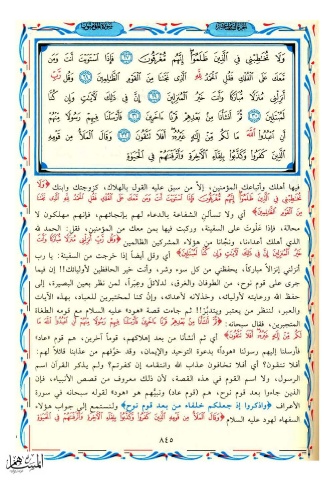 وَلَا تُخَاطِبْنِي فِي الَّذِينَ ظَلَمُوا إِنَّهُم مُّغْرَقُونَ ﴿٢٧﴾ فَإِذَا اسْتَوَيْتَ أَنتَ وَمَن
مَّعَكَ عَلَى الْفُلْكِ فَقُلِ الْحَمْدُ لِلَّهِ الَّذِي نَجَّانَا مِنَ الْقَوْمِ الظَّالِمِينَ ﴿٢٨﴾ وَقُل رَّبِّ
أَنزِلْنِي مُنزَلًا مُّبَارَكًا وَأَنتَ خَيْرُ الْمُنزِلِينَ ﴿٢٩﴾ إِنَّ فِي ذَٰلِكَ لَآيَاتٍ وَإِن كُنَّا
لَمُبْتَلِينَ ﴿٣٠﴾ ثُمَّ أَنشَأْنَا مِن بَعْدِهِمْ قَرْنًا آخَرِينَ ﴿٣١﴾ فَأَرْسَلْنَا فِيهِمْ رَسُولًا مِّنْهُمْ
أَنِ اعْبُدُوا اللَّهَ مَا لَكُم مِّنْ إِلَٰهٍ غَيْرُهُ أَفَلَا تَتَّقُونَ ﴿٣٢﴾ وَقَالَ الْمَلَأُ مِن قَوْمِهِ
الَّذِينَ كَفَرُوا وَكَذَّبُوا بِلِقَاءِ الْآخِرَةِ وَأَتْرَفْنَاهُمْ فِي الْحَيَاةِ
فيها أهلك وأتباعك المؤمنين، إلاّ من سبق عليه القول بالهلاك، كزوجتك وابنك ﴿وَلَا
تُخَاطِبْنِي فِي الَّذِينَ ظَلَمُوا إِنَّهُم مُّغْرَقُونَ فَإِذَا اسْتَوَيْتَ أَنتَ وَمَن مَّعَكَ عَلَى الْفُلْكِ فَقُلِ الْحَمْدُ لِلَّهِ الَّذِي نَجَّانَا
مِنَ الْقَوْمِ الظَّالِمِينَ﴾ أي ولا تسألني الشفاعة بالدعاء لهم بإنجائهم، فإنهم مهلكون لا
محالة، فإذا علوت على السفينة، وركبت فيها بمن معك من المؤمنين، فقل: الحمد لله
الذي أهلك أعداءنا، ونجّانا من هؤلاء المشركين الظالمين ﴿وَقُل رَّبِّ أَنزِلْنِي مُنزَلًا مُّبَارَكًا وَأَنتَ
خَيْرُ الْمُنزِلِينَ إِنَّ فِي ذَٰلِكَ لَآيَاتٍ وَإِن كُنَّا لَمُبْتَلِينَ﴾ أي وقل أيضاً إذا خرجت من السفينة: يا رب
أنزلني إنزالاً مباركاً، يحفظني من كل سوء وشر، وأنت خير الحافظين لأوليائك!! إن فيما
جرى على قوم نوح، من الطوفان والغرق، لدلائل وعِبَراً، لمن نظر بعين البصيرة، إلى
حفظ الله ورعايته لأوليائه، وخذلانه لأعدائه، وإن كنا لمختبرين للعباد، بهذه الآيات
والعبر، لننظر من يعتبر ويتدبّر!! ثم جاءت قصة «هود» عليه السلام مع قومه الطغاة
المتجبرين، فقال سبحانه: ﴿ثُمَّ أَنشَأْنَا مِن بَعْدِهِمْ قَرْنًا آخَرِينَ فَأَرْسَلْنَا فِيهِمْ رَسُولًا مِّنْهُمْ أَنِ اعْبُدُوا اللَّهَ مَا
لَكُم مِّنْ إِلَٰهٍ غَيْرُهُ أَفَلَا تَتَّقُونَ﴾ أي ثم أنشأنا من بعد إهلاكهم، قوماً آخرين، هم قوم «عاد»
فأرسلنا إليهم رسولنا «هوداً» بدعوة التوحيد، والإيمان، وقد خوَّفهم من عذابنا قائلاً لهم:
أفلا تتقون؟ أي أفلا تخافون عذاب الله وانتقامه إن كفرتم؟ ولم يذكر القرآن اسم
الرسول، ولا اسم القوم في هذه القصة، لأن ذلك معروف من قصص الأنبياء، فإن
الذين جاءوا بعد قوم نوح، هم (قوم عاد) ونبيُّهم هو (هود) لقوله سبحانه في سورة
الأعراف ﴿واذكروا إذ جعلكم خلفاء من بعد قوم نوح﴾ ولنستمع إلى جواب هؤلاء
السفهاء لهود عليه السلام ﴿وَقَالَ الْمَلَأُ مِن قَوْمِهِ الَّذِينَ كَفَرُوا وَكَذَّبُوا بِلِقَاءِ الْآخِرَةِ وَأَتْرَفْنَاهُمْ فِي الْحَيَاةِ
٨٤٥